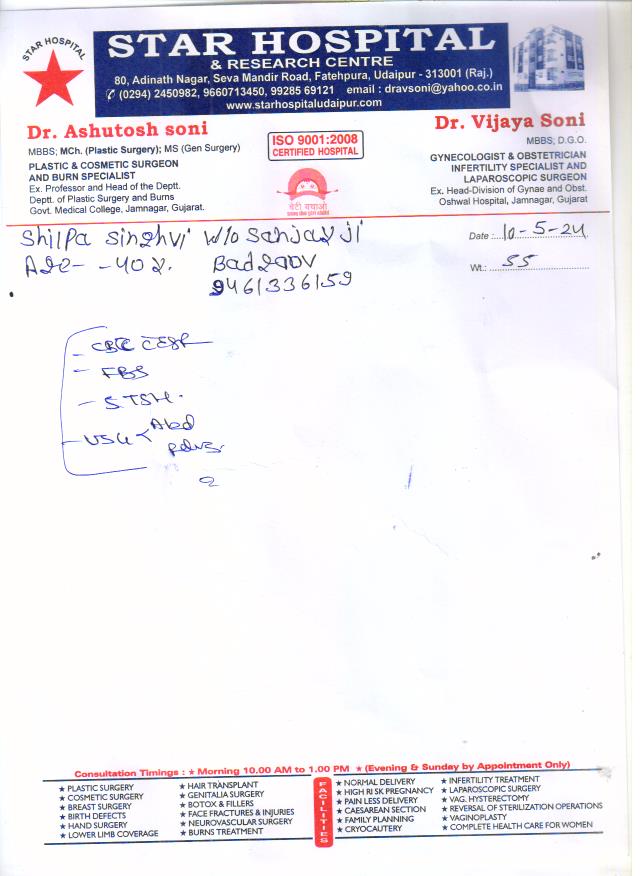 STAR HOSPITAL
STAR HOSPITAL
& RESEARCH CENTRE
80, Adinath Nagar, Seva Mandir Road, Fatehpura, Udaipur - 313001 (Raj.)
✆ (0294) 2450982, 9660713450, 99285 69121 email : dravsoni@yahoo.co.in
www.starhospitaludaipur.com
Dr. Ashutosh soni
MBBS; MCh. (Plastic Surgery); MS (Gen Surgery)
PLASTIC & COSMETIC SURGEON
AND BURN SPECIALIST
Ex. Professor and Head of the Deptt.
Deptt. of Plastic Surgery and Burns
Govt. Medical College, Jamnagar, Gujarat.
ISO 9001:2008
CERTIFIED HOSPITAL
बेटी बचाओ
Dr. Vijaya Soni
MBBS; D.G.O.
GYNECOLOGIST & OBSTETRICIAN
INFERTILITY SPECIALIST AND
LAPAROSCOPIC SURGEON
Ex. Head-Division of Gynae and Obst.
Oshwal Hospital, Jamnagar, Gujarat
Shilpa singhvi w/o sanjay ji
Age - - 40 y. Badgaov
9461336159
Date : 10-5-24
Wt.: 55
- CBC ESR
- FBS
- S TSH.
- USG < Abd
Pelvis
Consultation Timings : ★ Morning 10.00 AM to 1.00 PM ★ (Evening & Sunday by Appointment Only)
★ PLASTIC SURGERY
★ COSMETIC SURGERY
★ BREAST SURGERY
★ BIRTH DEFECTS
★ HAND SURGERY
★ LOWER LIMB COVERAGE
★ HAIR TRANSPLANT
★ GENITALIA SURGERY
★ BOTOX & FILLERS
★ FACE FRACTURES & INJURIES
★ NEUROVASCULAR SURGERY
★ BURNS TREATMENT
FACILITIES
★ NORMAL DELIVERY
★ HIGH RI SK PREGNANCY
★ PAIN LESS DELIVERY
★ CAESAREAN SECTION
★ FAMILY PLANNING
★ CRYOCAUTERY
★ INFERTILITY TREATMENT
★ LAPAROSCOPIC SURGERY
★ VAG. HYSTERECTOMY
★ REVERSAL OF STERILIZATION OPERATIONS
★ VAGINOPLASTY
★ COMPLETE HEALTH CARE FOR WOMEN